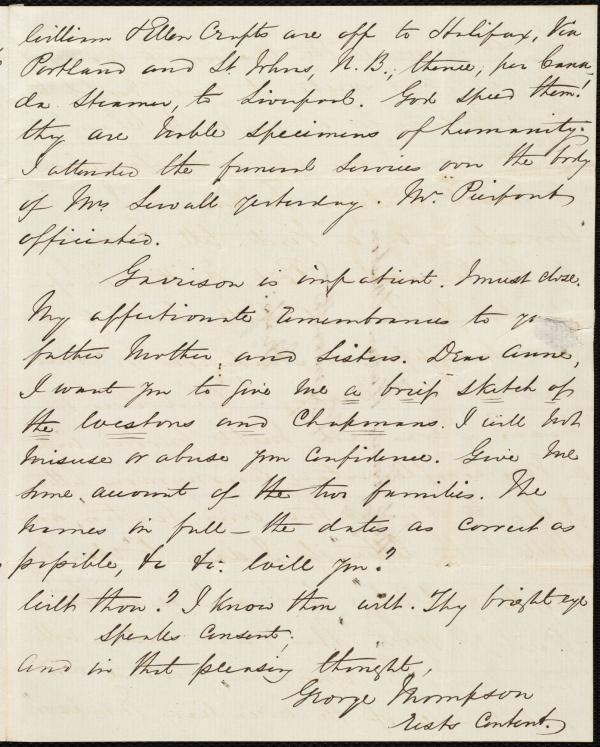 William & Ellen Crafts are off to Halifax, via
Portland and St. Johns, N. B.; thence, per Cana-
da Steamer, to Liverpool. God speed them!
they are noble specimens of humanity.
I attended the funeral services over the body
of Mrs Sewall yesterday. Mr. Pierpont
officiated.
Garrison is impatient. I must close.
My affectionate remembrances to yo
father Mother and Sisters. Dear Anne,
I want you to give me a brief sketch of
the Westons and Chapmans. I will not
misuse or abuse your confidence. Give me
some account of the two families. The
names in full — the dates as correct as
possible, &c &c. Will you?
Wilt thou? I know thou wilt. Thy bright eye
speaks consent;
and in that pleasing thought,
George Thompson
rests content.